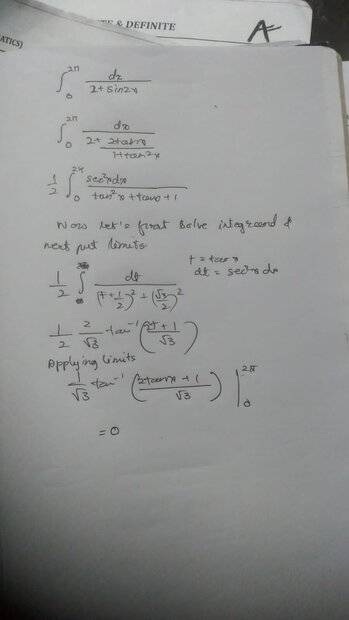 ATICS)
TE & DEFINITE
A
∫₀^{2π} dx / (2 + sin2x)
∫₀^{2π} dx / (2 + 2tanx / (1 + tan²x))
1/2 ∫₀^{2π} sec²x dx / (tan²x + tanx + 1)
Now let's first solve integrand &
next put limits
t = tan x
dt = sec²x dx
1/2 ∫ dt / ((t + 1/2)² + (√3/2)²)
1/2 2/√3 tan⁻¹ ((2t + 1) / √3)
Applying limits
1/√3 tan⁻¹ ((2tanx + 1) / √3) |₀^{2π}
= 0